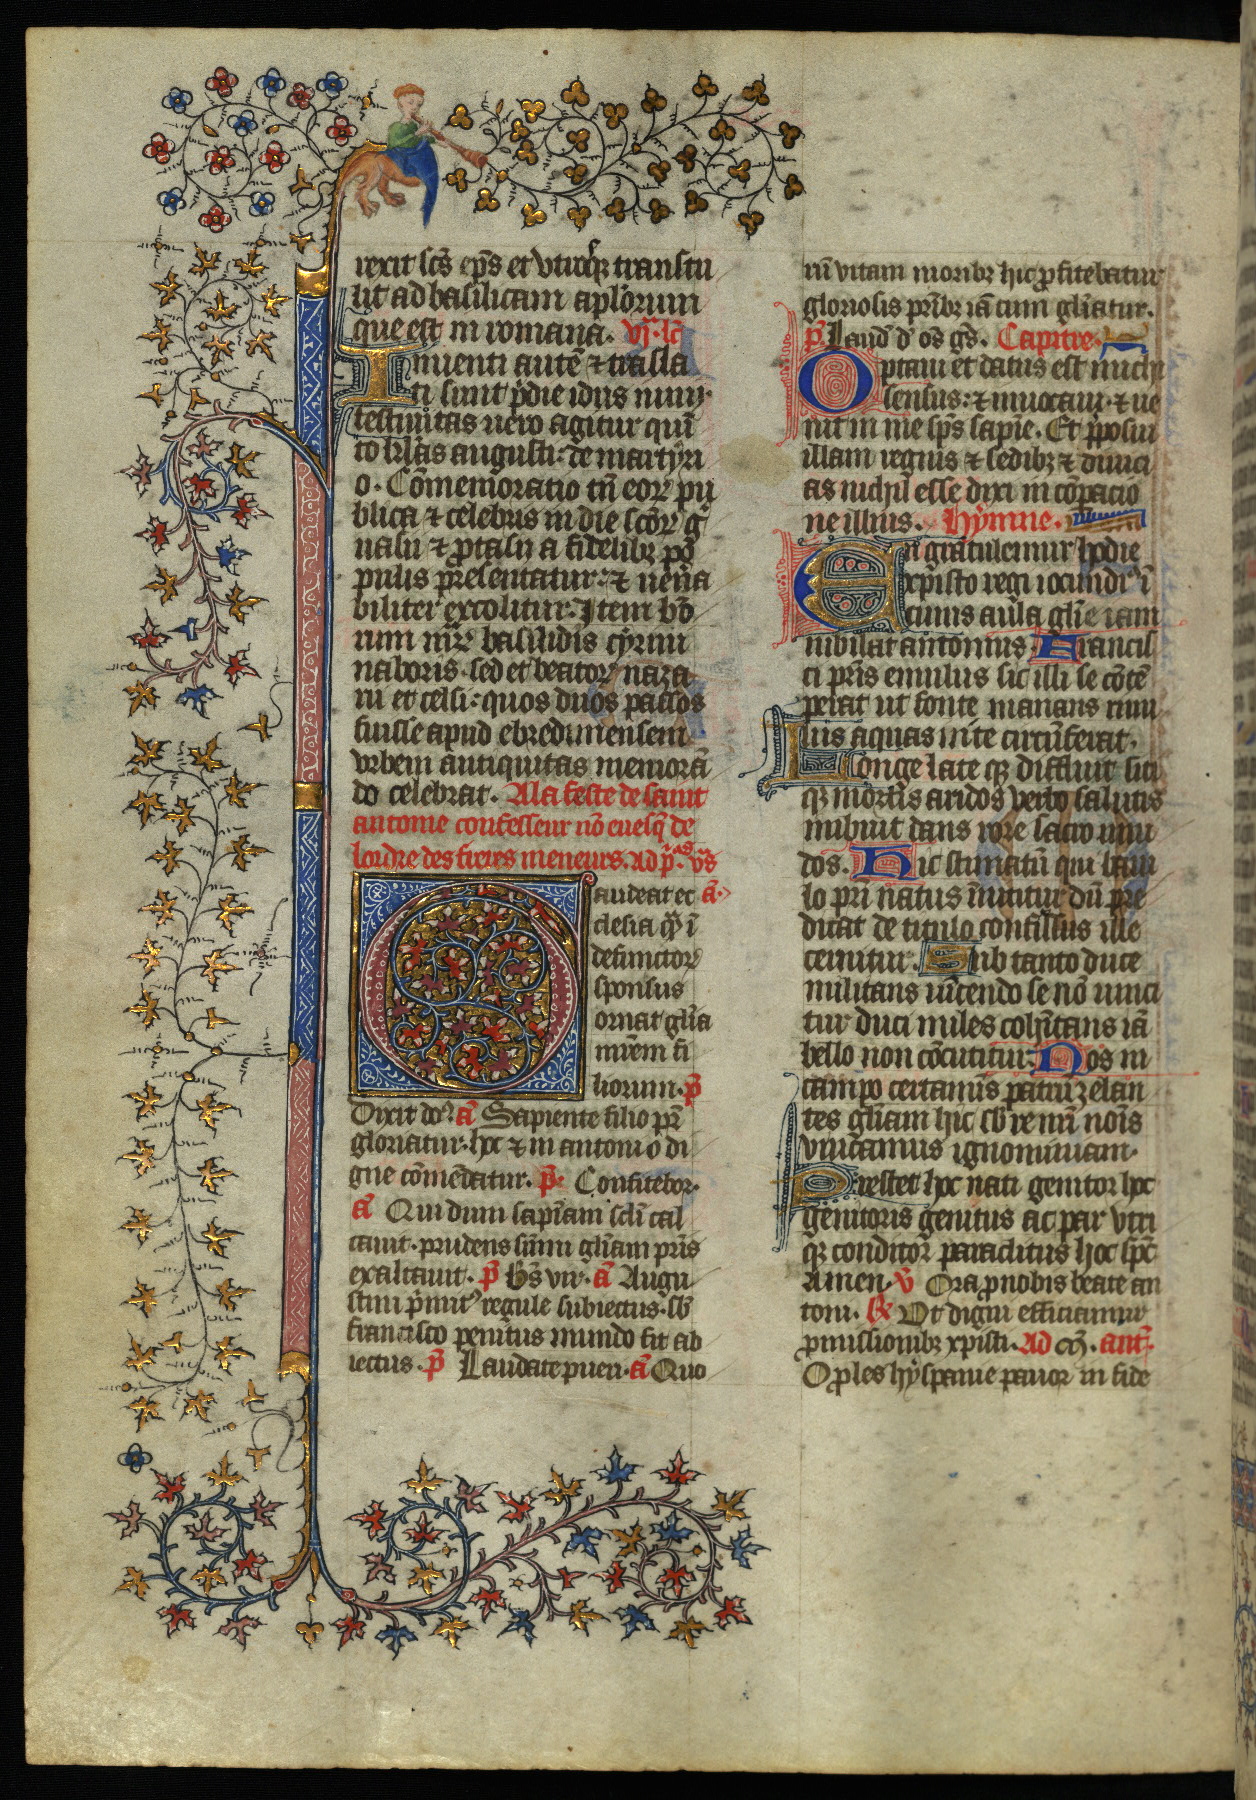 rexit scs eps et vtrosqꝫ transtu
lit ad basilicam aplorum
que est in romana. vj. lc
Inuenti autē ⁊ trasla
ti sunt pdie idus maij.
festiuitas uero agitur quī
to klas augusti: de martyri
o. Cōmemoratio tn̄ eoꝝ pu
blica ⁊ celebris in die scōꝝ g
uasij ⁊ ꝓtasij a fidelibꝫ po
pulis presentatur: ⁊ uenia
biliter excolitur: Item bō
rum mr̄ basilidis cyrini
naboris. sed et beatoꝝ naza
rii et celsi: quos duos passos
fuisse apud ebredunensem
vrbem antiquitas memorā
do celebrat. A la feste de saint
antoine confesseur nō euesqꝫ de
lordre des freres meneurs. ad p̄. vs̄
Gaudeat ec aᷓ.
clesia q̄ ī
defunctoꝝ
sponsus
ornat glīa
mr̄em fi
liorum. p̄
Dixit do᷒ aᷓ Sapiente filio pr̄
gloriatur. hoc ⁊ in antonio di
gne cōmēdatur. p̄ Confitebor.
aᷓ Qui dum sapiam scl̄i cal
cauit. prudens sūmi glīam pr̄is
exaltauit. p̄ Bs̄ vir. aᷓ Augu
stini p̄mit᷒ regule subiectus. sb̄
francisco penitus mundo fit ab
iectus. p̄ Laudate pueri. aᷓ Quo
rū vitam moribꝫ hic ꝓfitebatur
gloriosis pr̄ibꝫ iā cum glīatur.
p̄ Laud d os gs. Capitre.
Optaui et datus est michi
sensus: ⁊ inuocaui. ⁊ ue
nit in me sps̄ sapie. Et p̄posui
illam regnis ⁊ sedibꝫ ⁊ diuici
as nichil esse dixi in cōpacio
ne illius. Hymne.
En gratulemur hodie
xpisto regi iocundi᷒ ī
cuius aula glīe iam
iubilat antonius. Francis
ci pr̄is emulus sic illi se cōtē
perat ut fonte manans riuu
lus aquas inte circūferat.
Longe late qꝫ diffluit siti
qꝫ mortis aridos verbo salutis
imbuit dans rore sacro uiui
dos. Hic stimatū qui lauu
lo pri natus īnititur dū pre
dicat de titulo confissus ille
cernitur. Sub tanto duce
militans uīcendo se nō uinci
tur duci miles cohītans iā
bello non cōcutitur. Nos in
campo certamīs patrū zelan
tes glīam hic sb̄ renū noīs
vincamus ignominiam.
Prestet hoc nati genitor hoc
genitoris genitus ac par vtri
qꝫ conditor paraclitus hoc sp̄c
Amen. v̄ Ora ꝓ nobis beate an
toni. ℟ Vt digni efficiamur
ꝓmissionibꝫ xpisti. Ad m̄. ant̄.
O ꝓles hyspanie pauor in fide